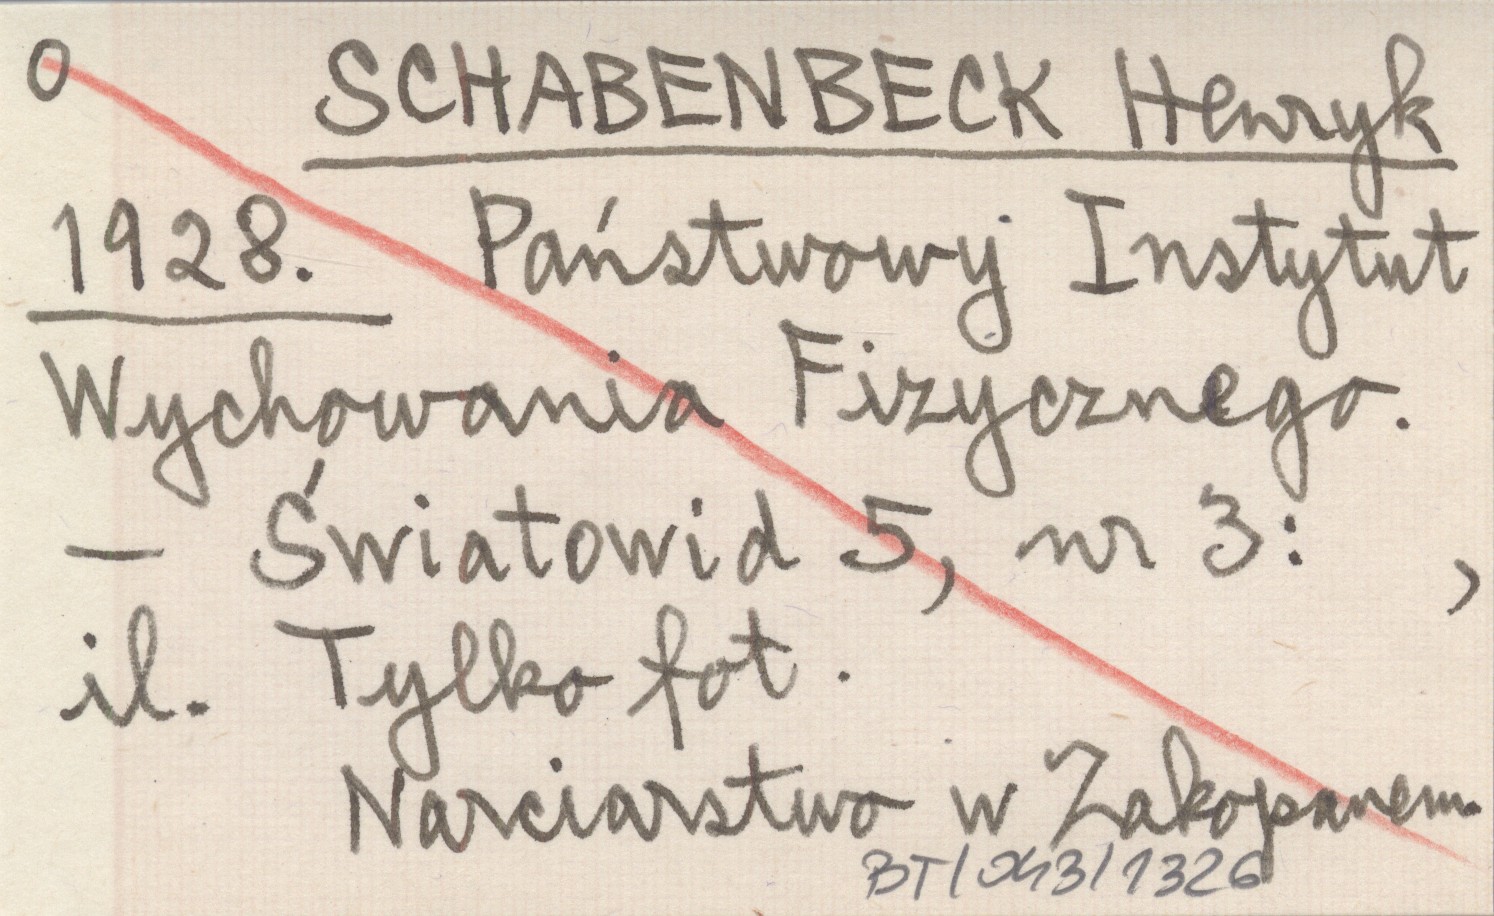 0 SCHABENBECK Henryk
1928. Państwowy Instytut
Wychowania Fizycznego.
— Światowid 5, nr 3: ,
il. Tylko fot.
Narciarstwo w Zakopanem.
BT/043/1326